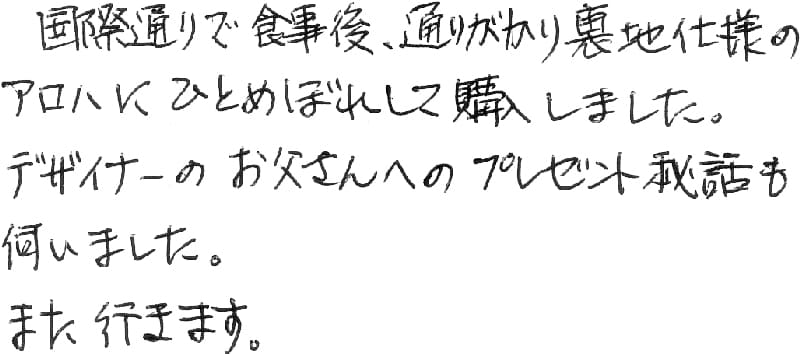 国際通りで食事後、通りがかり裏地仕様の
アロハにひとめぼれして購入しました。
デザイナーのお父さんへのプレゼント秘話も
伺いました。
また行きます。